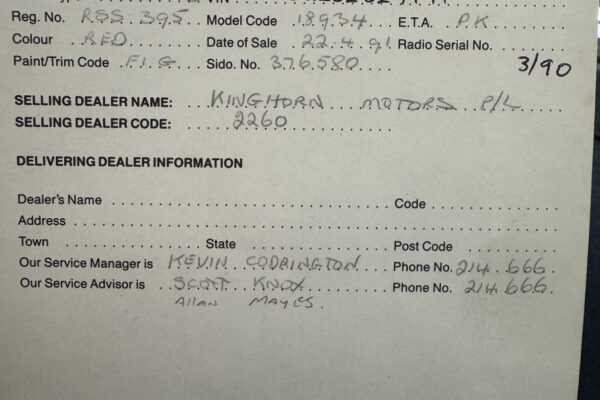 Reg. No. RSS.395 Model Code 18934 E.T.A. P.K
Colour RED Date of Sale 22.4.91 Radio Serial No.
Paint/Trim Code F.I.G Sido. No. 376.580 3/90
SELLING DEALER NAME: KINGHORN MOTORS P/L
SELLING DEALER CODE: 2260
DELIVERING DEALER INFORMATION
Dealer's Name Code
Address
Town State Post Code
Our Service Manager is KEVIN CODRINGTON Phone No. 214.666
Our Service Advisor is SCOTT KNOX Phone No. 214.666.
ALLAN MAYES.